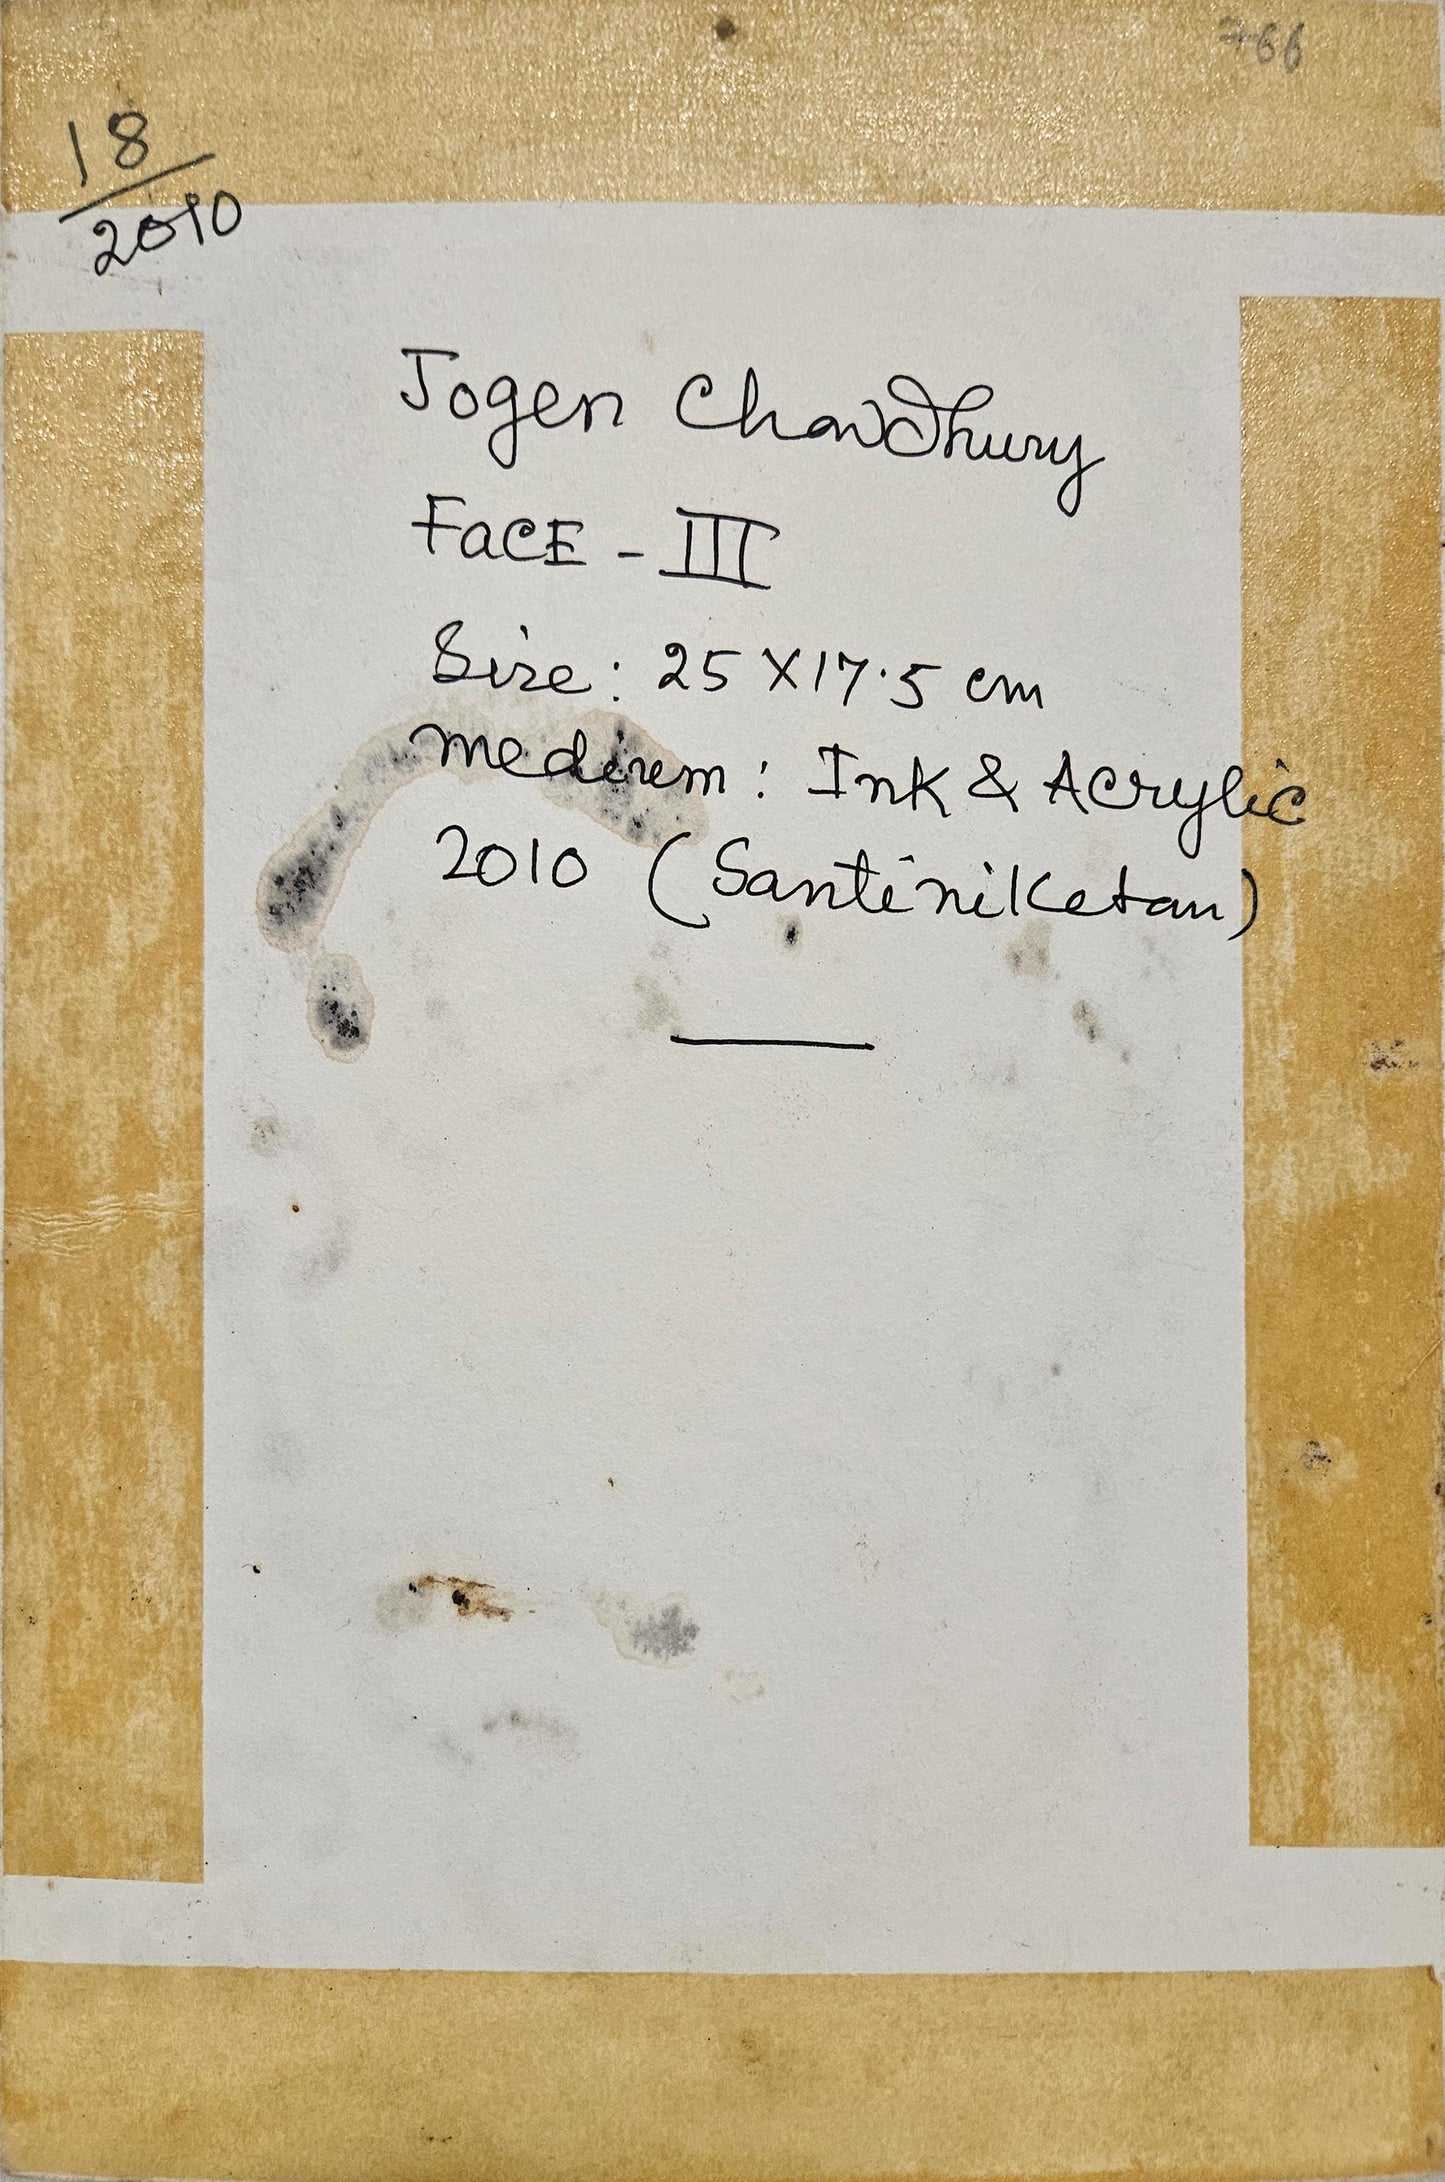 766
18
2010
Jogen Chowdhury
FaCE - III
Size: 25 X 17.5 cm
medium: Ink & Acrylic
2010 (Santiniketan)